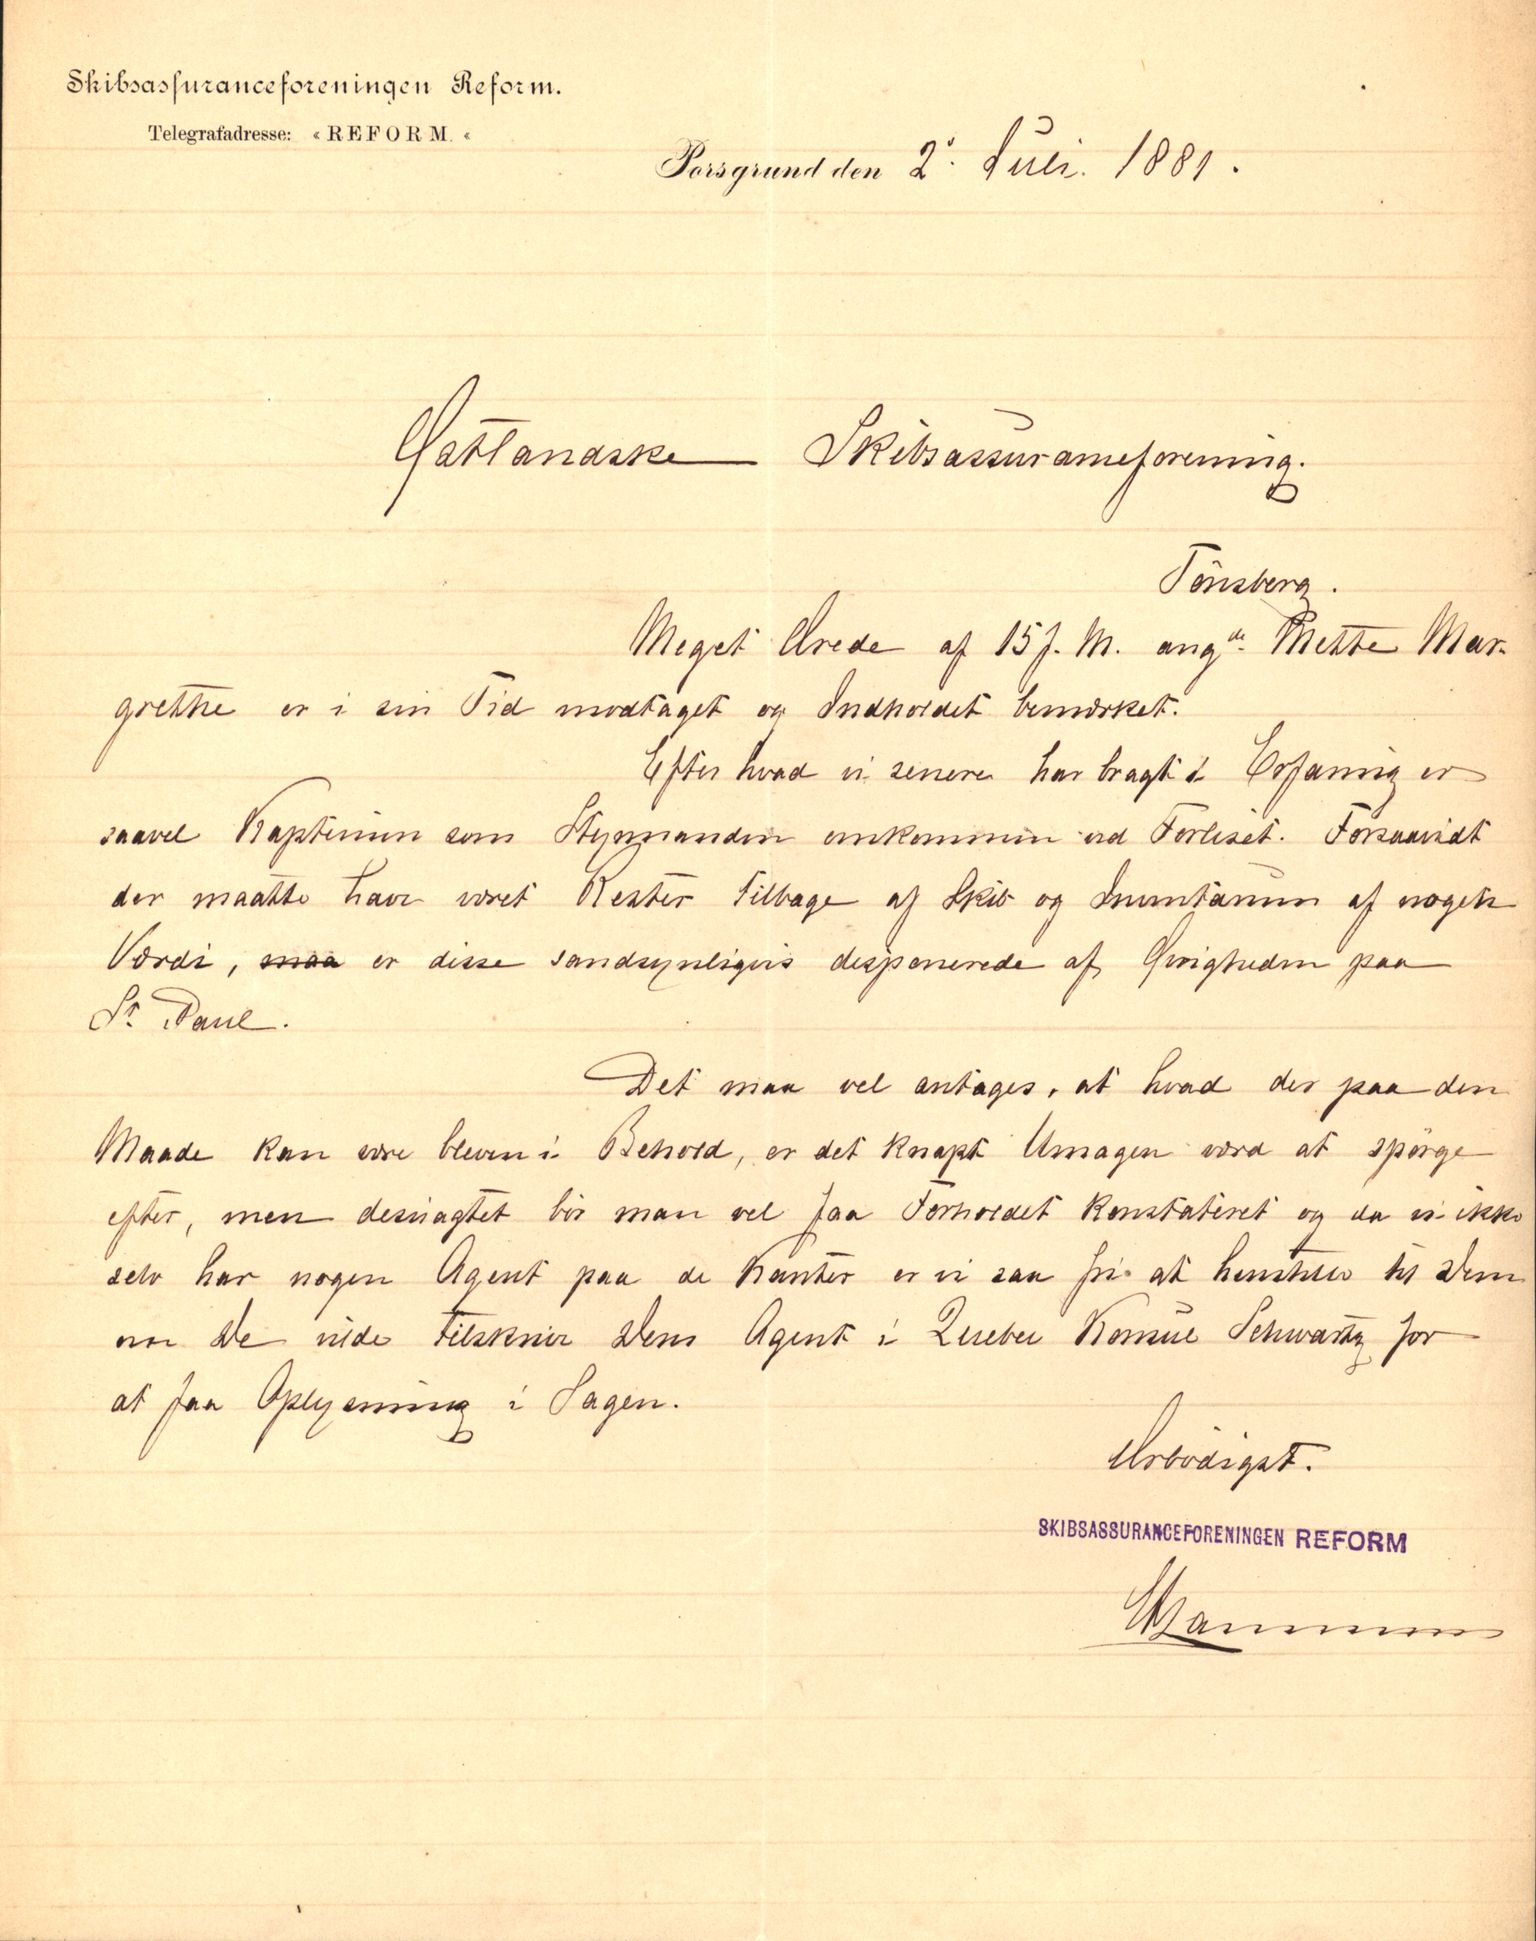 Skibsassuranceforeningen Reform.
Telegrafadresse: « REFORM. «
Porsgrund den 2'. Juli. 1881.
Østlandske Skibsassuranceforening.
Tönsberg.
Meget Ærede af 15 f. M. angde. Mette Mar-
grethe er i sin Tid modtaget og Indholdet bemærket.
Efter hvad vi senere har bragt i Erfaring er
saavel Kapteinen som Styrmanden omkommen ved Forliset. Forsaavidt
der maatte have været Rester tilbage af Skib og Inventarium af nogen
Værdi, maa er disse sandsynligvis disponerede af Øvrigheden paa
St. Paul.
Det maa vel antages, at hvad der paa den
Maade kan være bleven i Behold, er det knapt Umagen værd at spörge
efter, men desuagtet bör man vel faa Forholdet konstateret og da vi ikke
selv har nogen Agent paa de Kanter er vi saa fri at henstille til Dem
om De vilde tilskrive Deres Agent i Quebec Konsul Schwartz for
at faa Oplysning i Sagen.
Ærbödigst.
SKIBSASSURANCEFORENINGEN REFORM